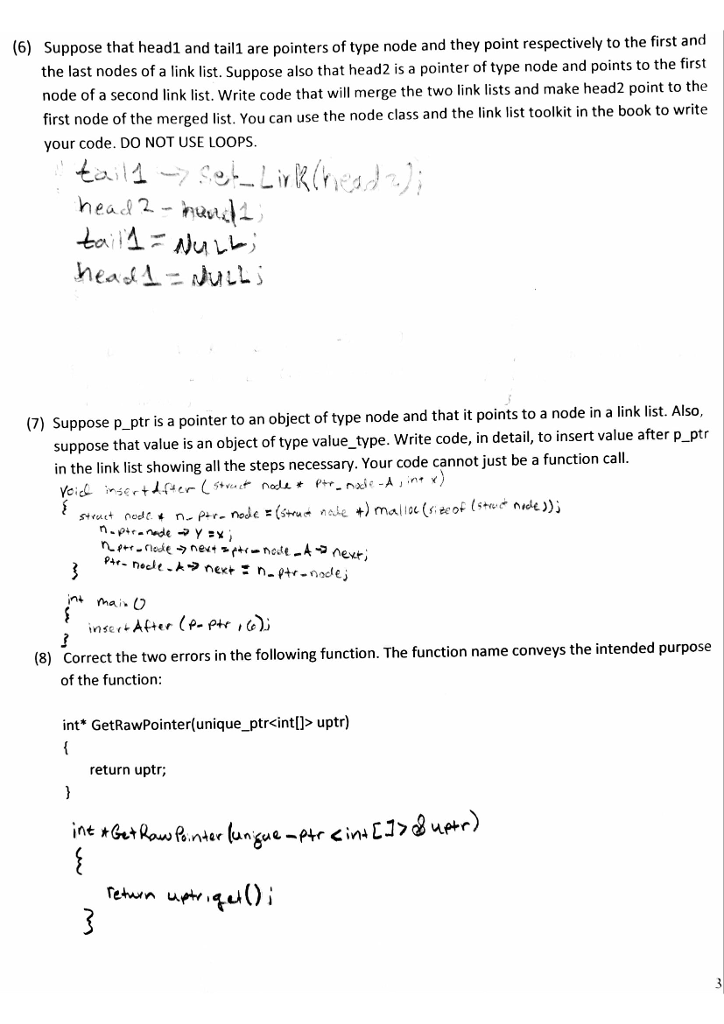 (6) Suppose that head1 and tail1 are pointers of type node and they point respectively to the first and
the last nodes of a link list. Suppose also that head2 is a pointer of type node and points to the first
node of a second link list. Write code that will merge the two link lists and make head2 point to the
first node of the merged list. You can use the node class and the link list toolkit in the book to write
your code. DO NOT USE LOOPS.
tail1 -> set_Link(head2);
head2 = head1;
tail1 = NULL;
head1 = NULL;
(7) Suppose p_ptr is a pointer to an object of type node and that it points to a node in a link list. Also,
suppose that value is an object of type value_type. Write code, in detail, to insert value after p_ptr
in the link list showing all the steps necessary. Your code cannot just be a function call.
void insertAfter (struct node * ptr_node_A, int x)
{
struct node * n_ptr_node = (struct node *) malloc (sizeof (struct node));
n_ptr_node -> y = x;
n_ptr_node -> next = ptr_node_A -> next;
ptr_node_A -> next = n_ptr_node;
}
int main()
{
insertAfter (p_ptr, 6);
}
(8) Correct the two errors in the following function. The function name conveys the intended purpose
of the function:
int* GetRawPointer(unique_ptr<int[]> uptr)
{
return uptr;
}
int *GetRawPointer (unique_ptr <int[]> & uptr)
{
return uptr.get();
}
3